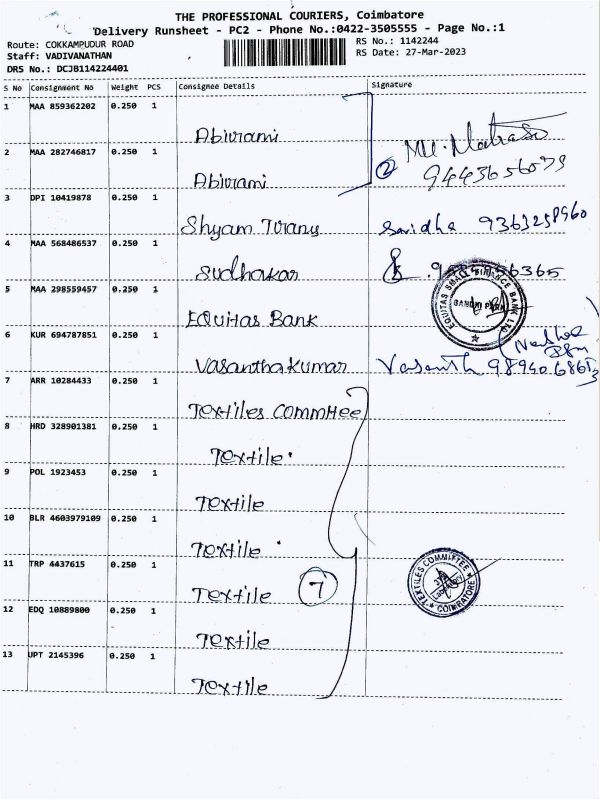 THE PROFESSIONAL COURIERS, Coimbatore
Delivery Runsheet - PC2 - Phone No.:0422-3505555 - Page No.:1
Route: COKKAMPUDUR ROAD
Staff: VADIVANATHAN
DRS No.: DCJB114224401
RS No.: 1142244
RS Date: 27-Mar-2023
S No Consignment No Weight PCS Consignee Details Signature
1 MAA 859362202 0.250 1
Abirami
2 MAA 282746817 0.250 1
Abirami
2
9443656039
3 DPI 10419878 0.250 1
Shyam Tirany
Saridha 9363258960
4 MAA 568486537 0.250 1
Sudhakar
5 MAA 298559457 0.250 1
EQuitas Bank
EQUITAS SMALL FINANCE BANK LTD.
GANDHI PARK
6 KUR 694787851 0.250 1
Vasanthakumar
Vasanth
7 ARR 10284433 0.250 1
Textiles Committee
8 HRD 328901381 0.250 1
Textile
9 POL 1923453 0.250 1
Textile
10 BLR 4603979109 0.250 1
Textile
11 TRP 4437615 0.250 1
Textile
7
TEXTILES COMMITTEE
COIMBATORE
12 EDQ 10889800 0.250 1
Textile
13 UPT 2145396 0.250 1
Textile